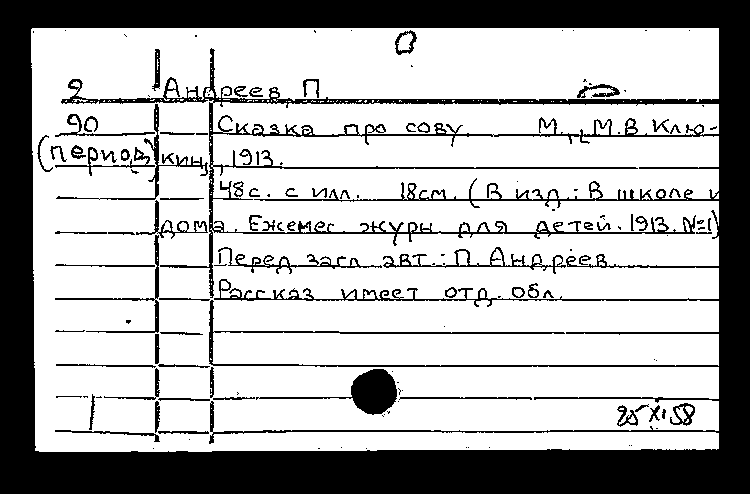 2 Андреев, П.
90 Сказка про сову. М., М.В. Клю-
(период) кин, 1913.
48с. с илл. 18см. (В изд.: В школе и
дома. Ежемес. журн. для детей. 1913. №1)
Перед загл. авт.: П. Андреев.
Рассказ имеет отд. обл.
25 XI 58